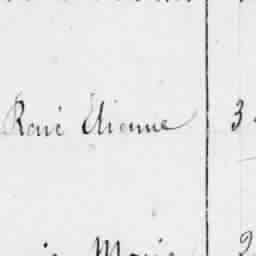 René Etienne 3
Marie 2